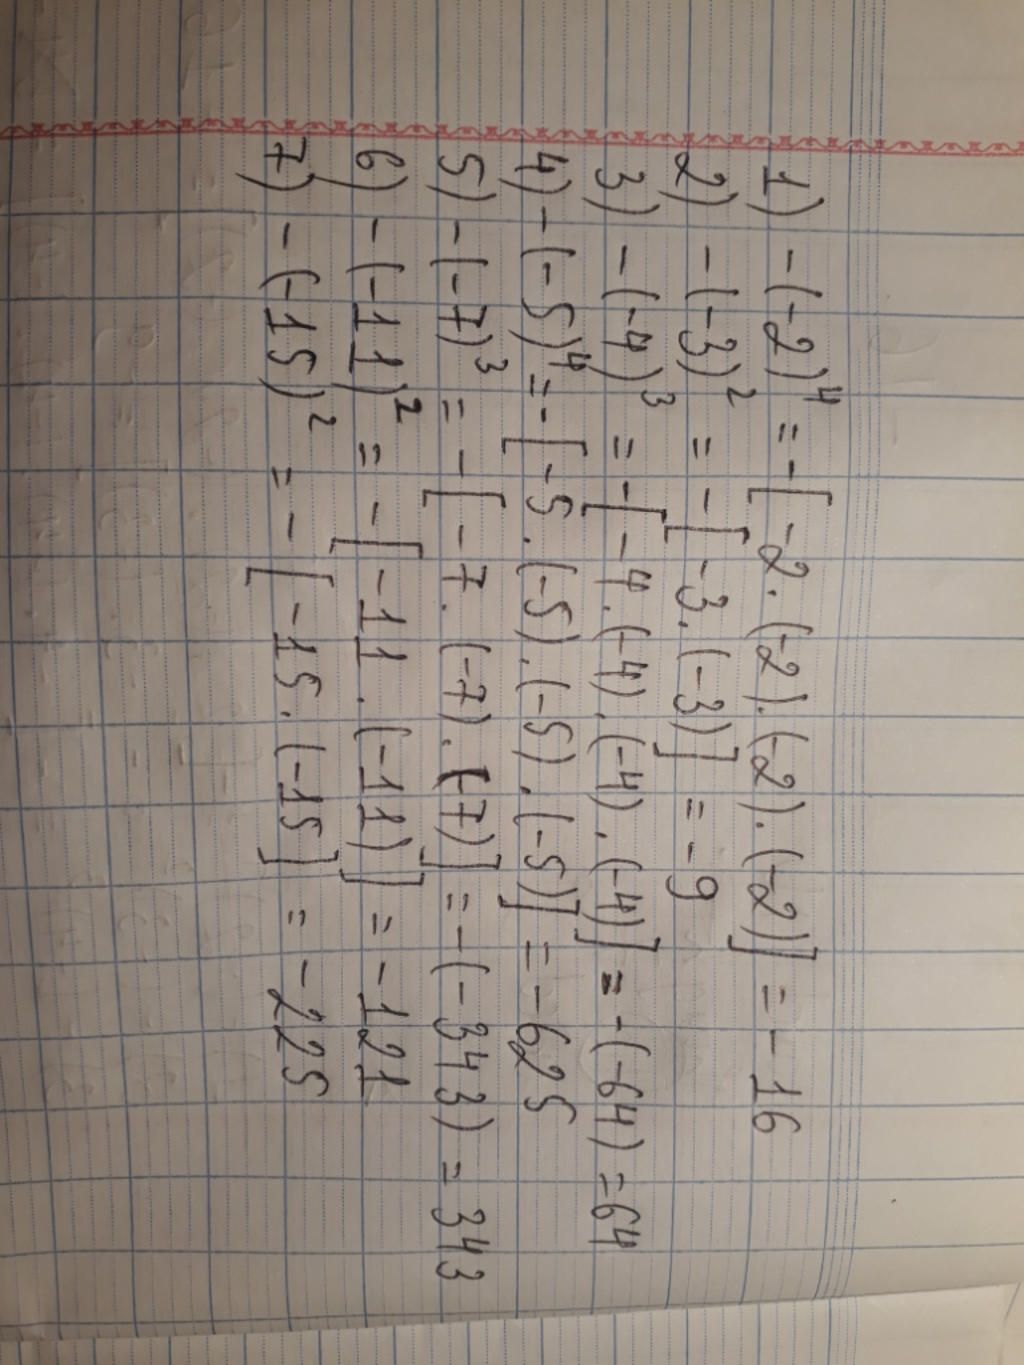 1) -(-2)⁴ = -[-2.(-2).(-2).(-2)] = -16
2) -(-3)² = -[-3.(-3)] = -9
3) -(-4)³ = -[-4.(-4).(-4).(-4)] = -(-64) = 64
4) -(-5)⁴ = -[-5.(-5).(-5).(-5)] = -625
5) -(-7)³ = -[-7.(-7).(-7)] = -(-343) = 343
6) -(-11)² = -[-11.(-11)] = -121
7) -(-15)² = -[-15.(-15] = -225